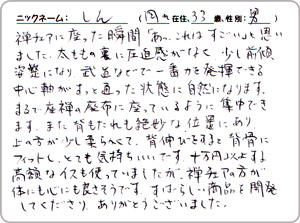 ニックネーム： しん （国内在住、33歳、性別：男）
禅チェアに座った瞬間「あっ、これはすごい」と思い
ました。太ももの裏に圧迫感がなく、少し前傾
姿勢になり 武道などで一番力を発揮できる
中心軸がまっと通った状態に自然になります。
まるで座禅の座布に座っているように集中でき
ます。また背もたれも絶妙な位置にあり
上の方が少し柔らかくて、背伸びをすると背骨に
フィットし、とても気持ちいいです。十万円以上する
高額なイスも使っていましたが、禅チェアの方が
体にも心にも良さそうです。すばらしい商品を開発
してくださり、ありがとうございました。